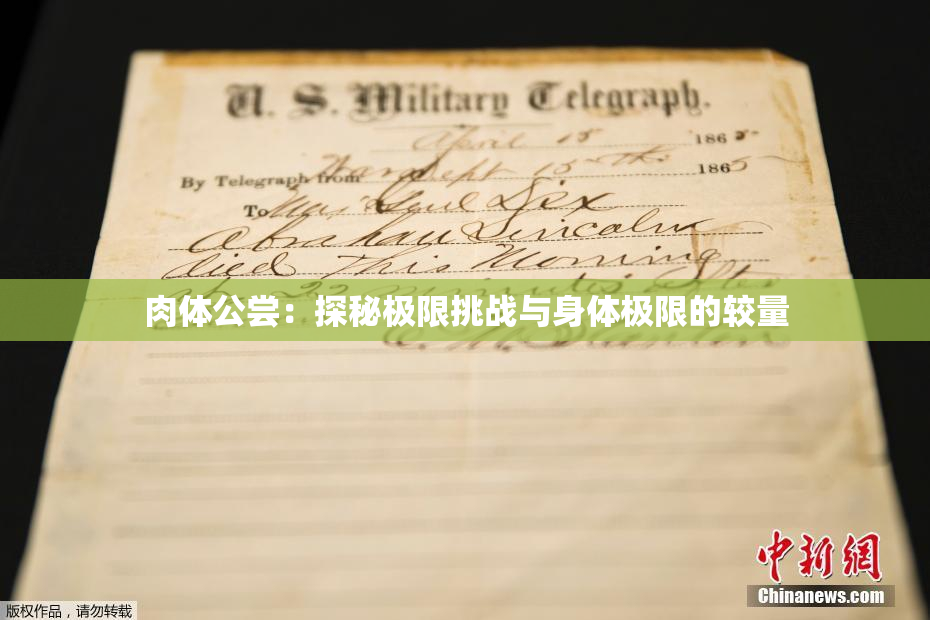 U. S. Military Telegraph.
April 15 1865
By Telegraph from War Dept 15th 1865
To Maj Genl Dix
Abraham Lincoln
died This Morning
at 22 minutes after
肉体公尝：探秘极限挑战与身体极限的较量
E. M. Stanton
中新网
Chinanews.com
版权作品，请勿转载